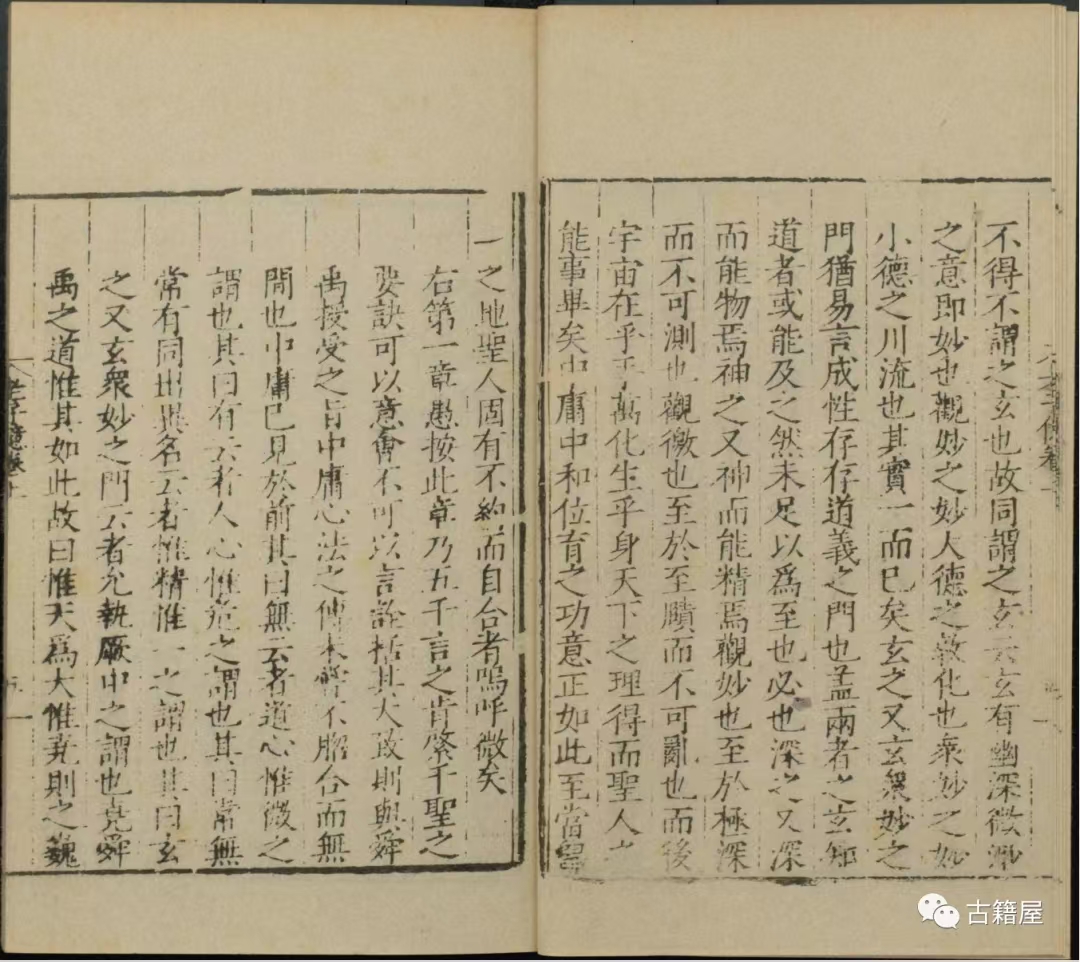 不得不謂之玄也故同謂之玄云玄有幽深微渺
之意即妙也觀妙之妙大德之敦化也衆妙之妙
小德之川流也其實一而已矣玄之又玄衆妙之
門猶易言成性存存道義之門也盖兩者之玄知
道者或能及之然未足以爲至也必也深之又深
而能物焉神之又神而能精焉觀妙也至於極深
而不可測也觀徼也至於至賾而不可亂也而後
宇宙在乎手萬化生乎身天下之理得而聖人之
能事畢矣中庸中和位育之功意正如此至當歸
一之地聖人固有不約而自合者嗚呼微矣
右第一章愚按此章乃五千言之肯綮千聖之
要訣可以意會不可以言詮括其大致則與舜
禹授受之旨中庸心法之傳未嘗不脗合而無
間也中庸已見於前其曰無云者道心惟微之
謂也其曰有云者人心惟危之謂也其曰常無
常有同出異名云者惟精惟一之謂也其曰玄
之又玄衆妙之門云者允執厥中之謂也堯舜
禹之道惟其如此故曰惟天爲大惟堯則之巍
五
古籍屋